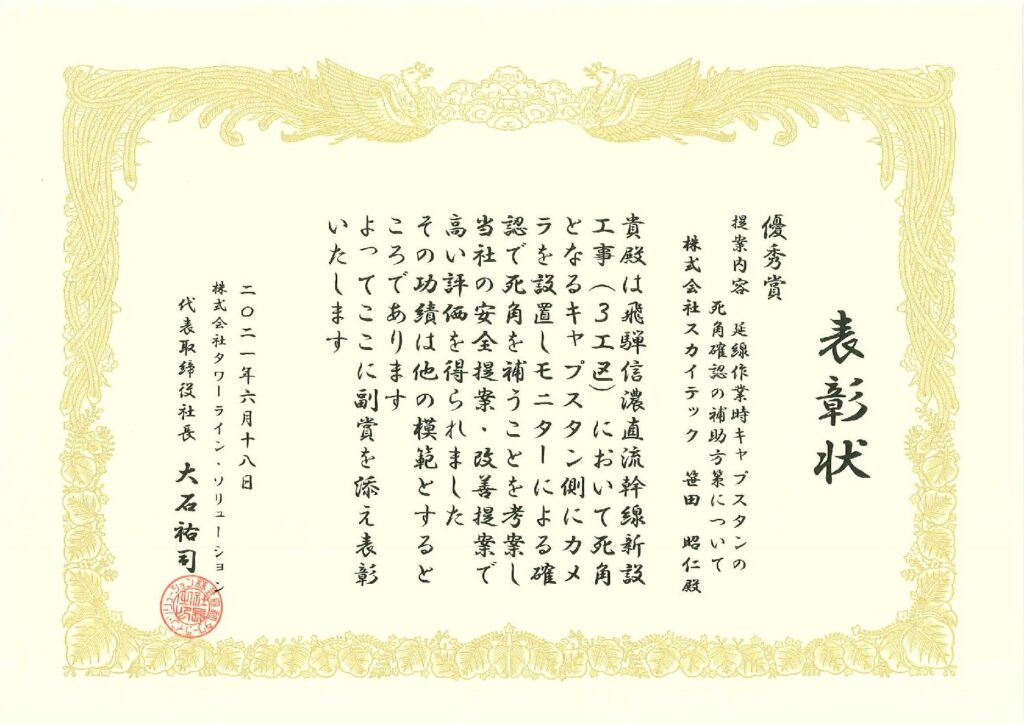 表彰状
優秀賞
提案内容 延線作業時キャプスタンの
死角確認の補助方策について
株式会社スカイテック 笹田 昭仁殿
貴殿は飛騨信濃直流幹線新設
工事(3工区)において死角
となるキャプスタン側にカメ
ラを設置しモニターによる確
認で死角を補うことを考案し
当社の安全提案・改善提案で
高い評価を得られました
その功績は他の模範とすると
ころであります
よってここに副賞を添え表彰
いたします
二〇二一年六月十八日
株式会社タワーライン・ソリューション
代表取締役社長 大石祐司